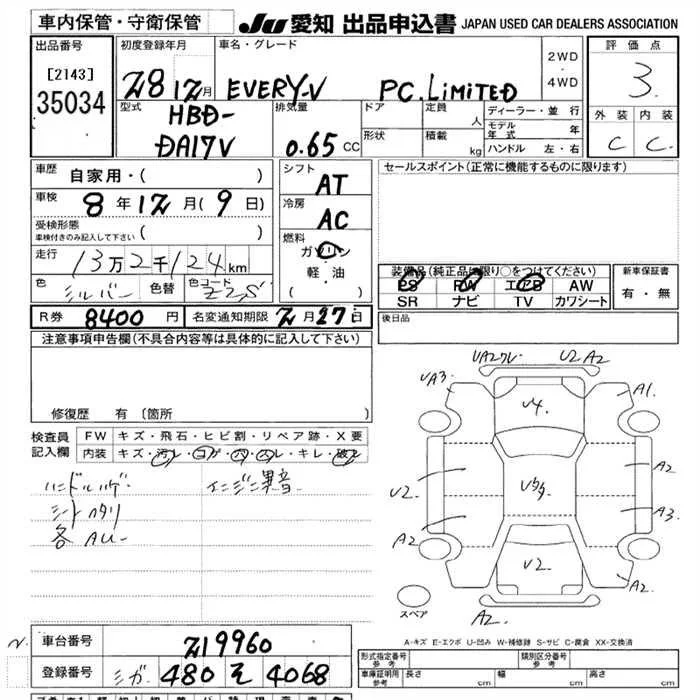 車内保管・守衛保管 JU 愛知 出品申込書 JAPAN USED CAR DEALERS ASSOCIATION
出品番号 初度登録年月 車名・グレード 評価点
[2143]
35034
28 12月 EVERY-V PC.LIMITED 2WD・4WD 3.
型式 HBD-DA17V 排気量 0.65 CC ドア 形状 定員 人 積載 kg ディーラー・並行 モデル年式 年 ハンドル 左・右
外装 内装
C C
車歴 自家用・( )
シフト AT
セールスポイント(正常に機能するものに限ります)
車検 8年12月(9日)
冷房 AC
受検形態 車検付きのみ記入して下さい ( )
燃料 ガソリン 軽・油 ( )
走行 13万2千124km
色 シルバー 色替 色コード Z2S
装備品(純正品に限り○をつけてください) 新車保証書
PS PW エアB AW 有・無
SR ナビ TV カワシート
R券 8400円 名変通知期限 2月27日
後日品
注意事項申告欄(不具合内容等は具体的に記入して下さい)
修復歴 有 [箇所
検査員記入欄 FW キズ・飛石・ヒビ割・リペア跡・X要
内装 キズ・汚レ・コゲ・穴・スレ・キレ・破レ
ハンドルハゲ エンジン異音
シート
各AU-
VA2ワレ U2 A2
UA3 A1
U4
A2
U2
A3
A2
U2
A2
スペア
A2
A-キズ E-エクボ U-凹み W-補修跡 S-サビ C-腐食 XX-交換済
車台番号 219960
登録番号 シガ 480 そ 4068
形式指定番号 参考 類別区分番号 参考
車庫証明用 参考 長さ cm 幅 cm 高さ cm